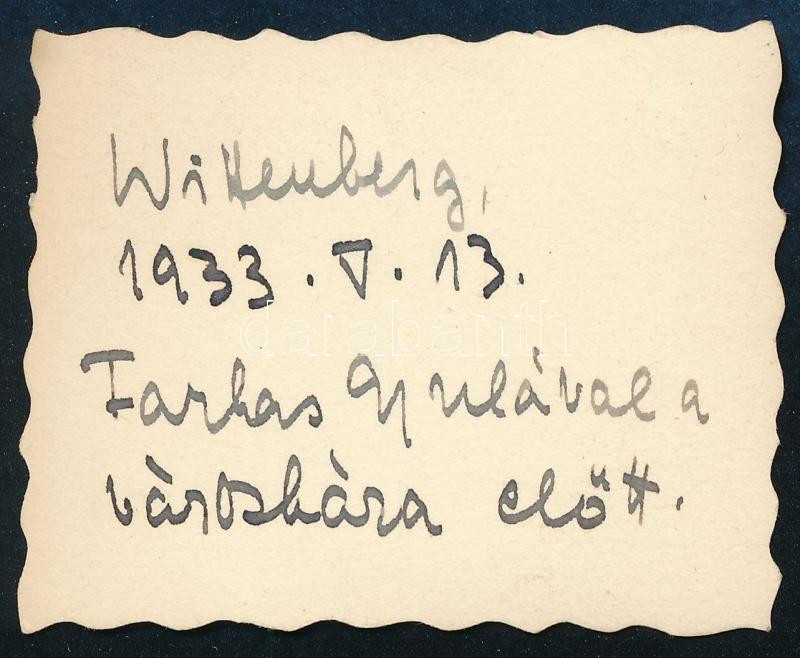 Wittenberg,
1933. V. 13.
darabanth
Farkas Gyulával a
városháza előtt.